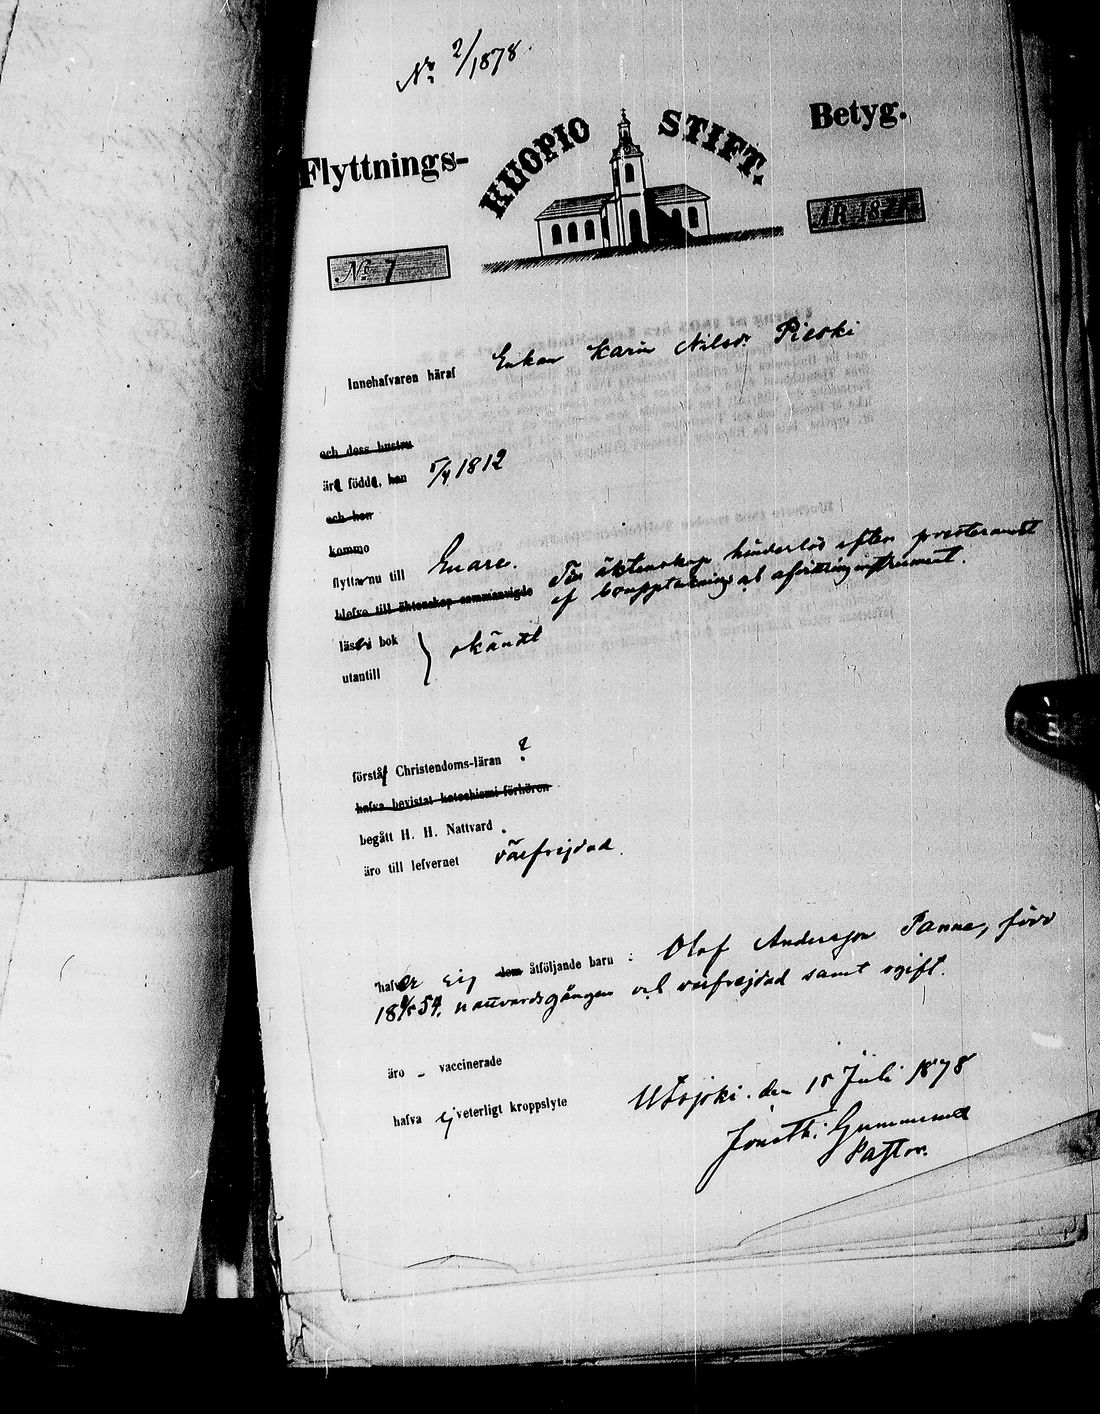 No 2/1878
Flyttnings- KUOPIO STIFT. Betyg.
No 7 ÅR 187
Innehafvaren häraf Enkan Karin Nilsdr Pieski
och dess hustru
äro födde, han 5/4 1812
och hon
kommo
flytta nu till Enare. För äktenskap hinderlös efter presteramdt
blefvo till äktenskap sammanvigde af bouppteckning och afvittringinstrument.
läsa i bok
utantill } okändt
förstå Christendoms-läran ?
hafva bevistat katechismi förhören
begått H. H. Nattvard .
äro till lefvernet välfrejdad.
hafver sig dem åtföljande barn : Olof Andersson Panne, född
18 54. nattvardsgången och välfrejdad samt ogift.
äro – vaccinerade
hafva ej veterligt kroppslyte
Utsjoki. den 15 Juli 1878
Jonath: Gummerus
Pastor.